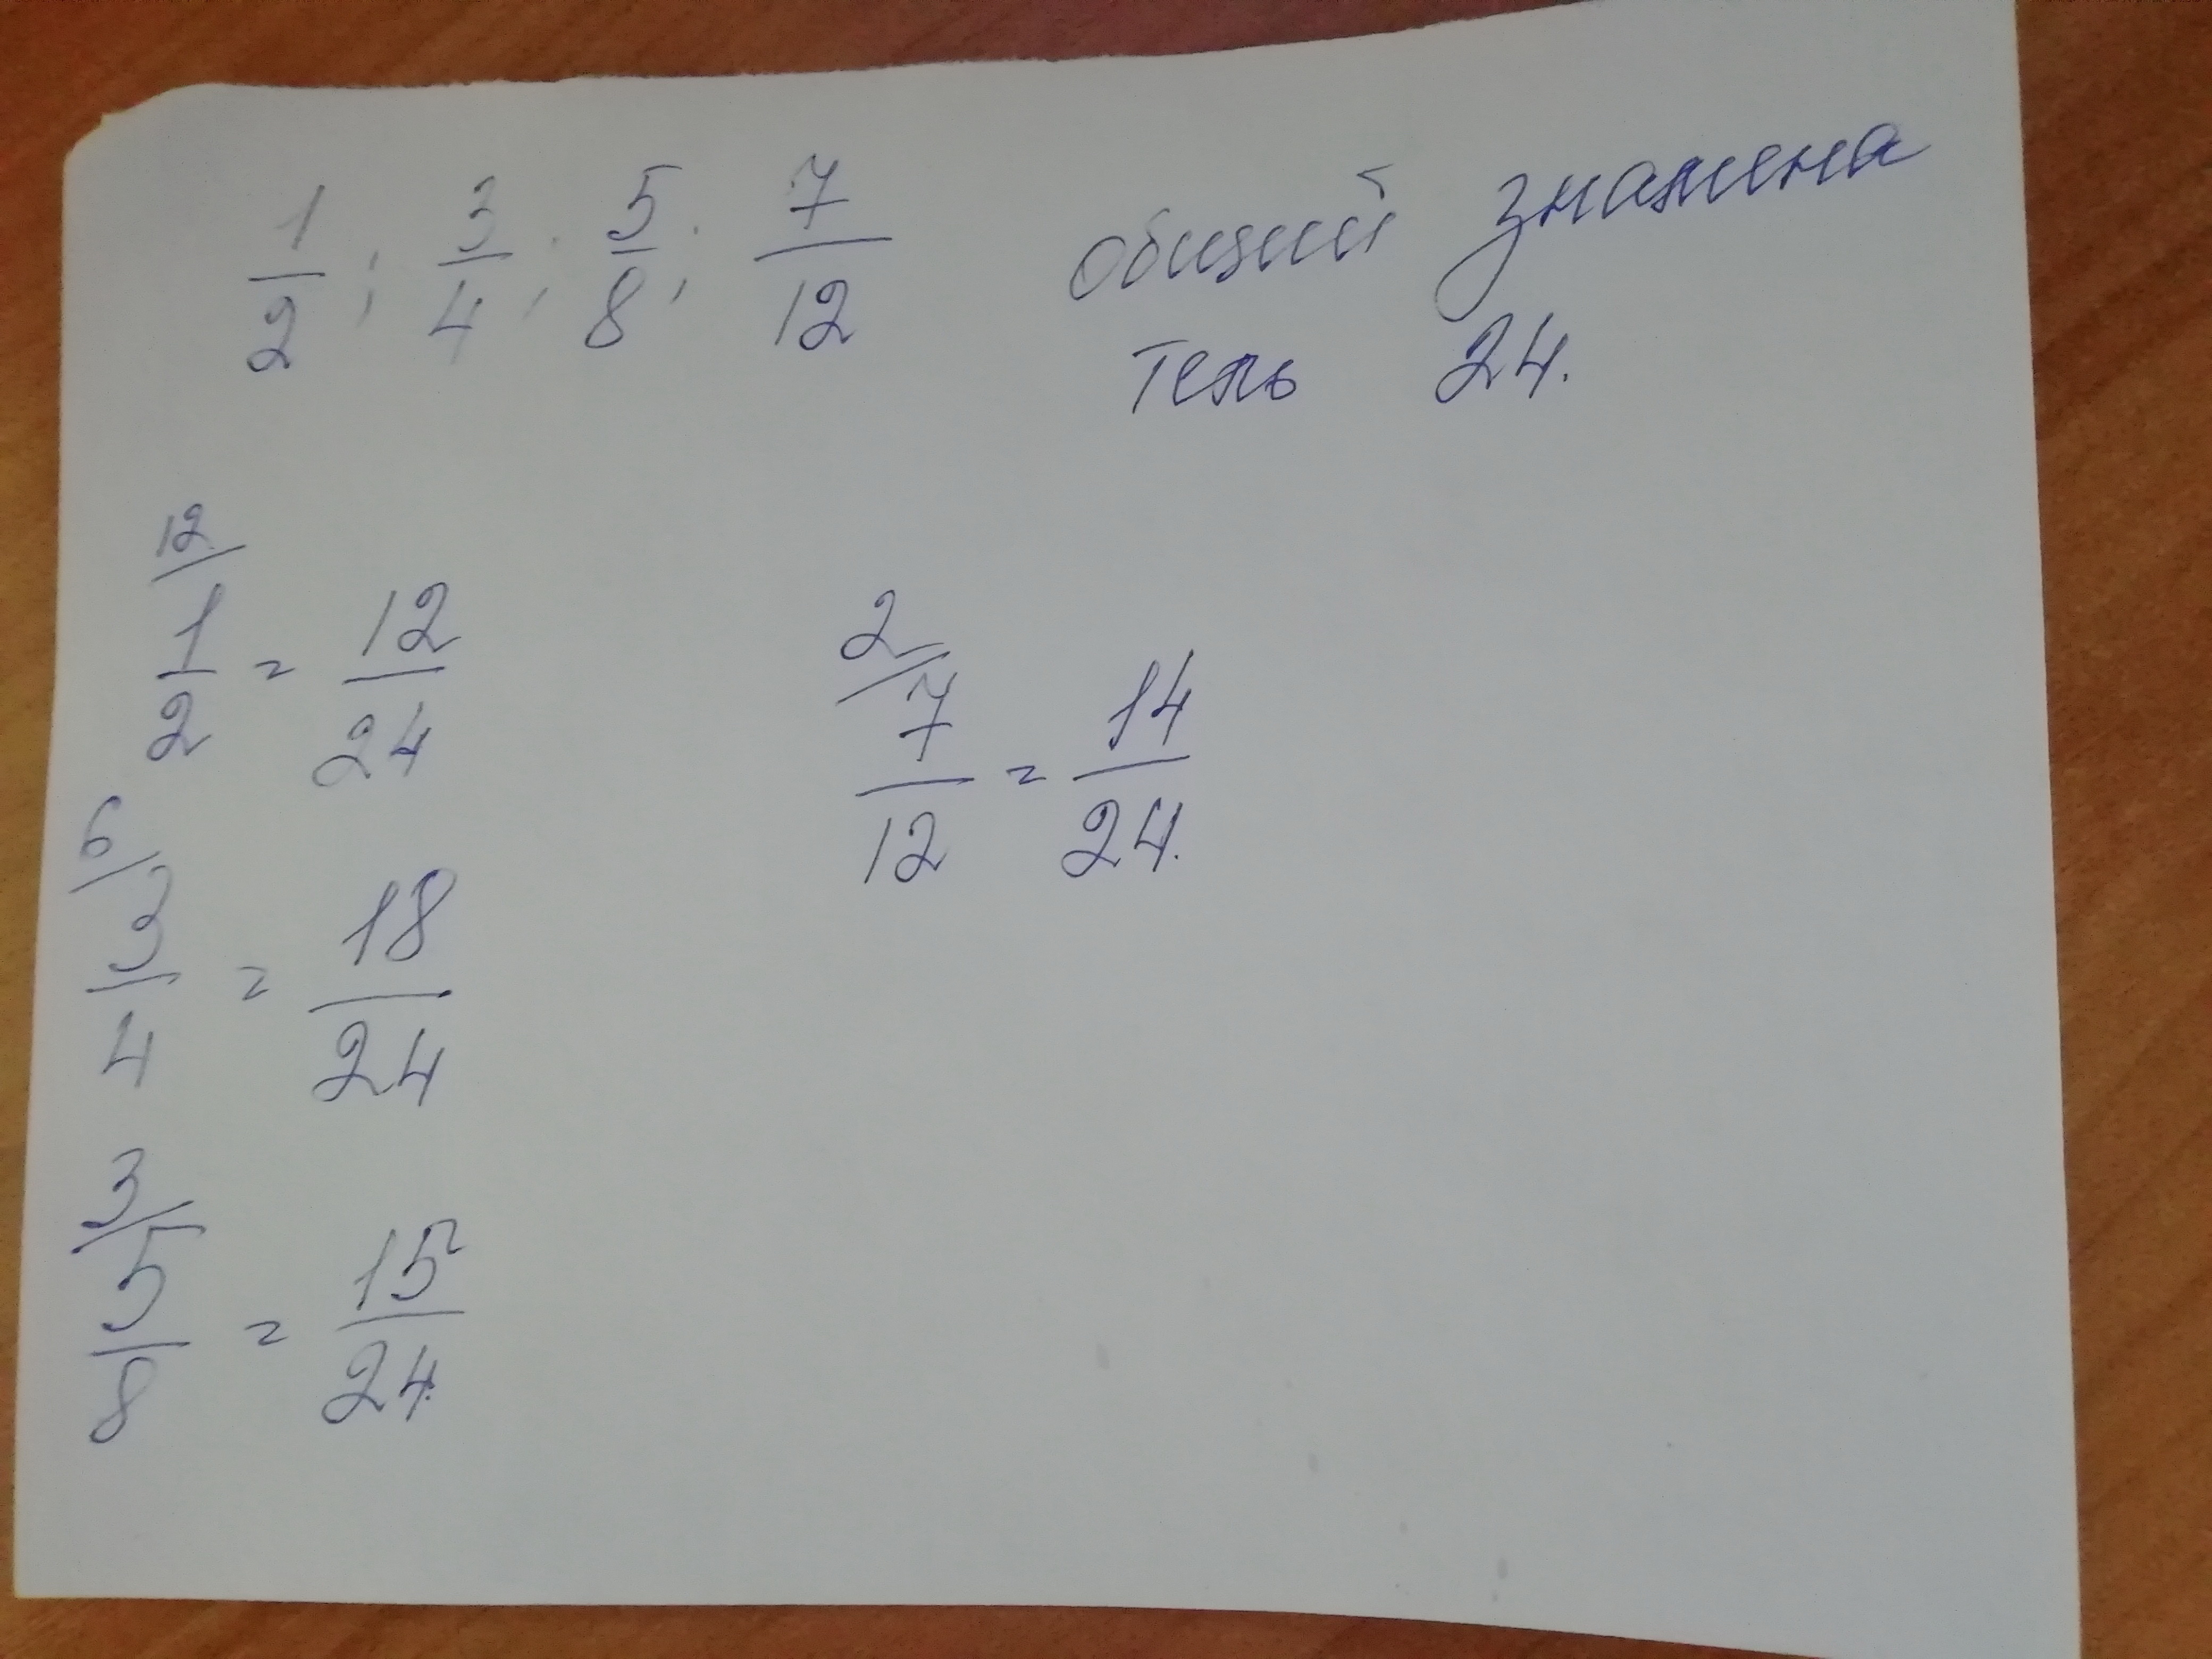 1/2 ; 3/4 ; 5/8 ; 7/12 общий знамена
тель 24.
12/
1/2 = 12/24
6/
3/4 = 18/24
3/
5/8 = 15/24
2/
7/12 = 14/24.